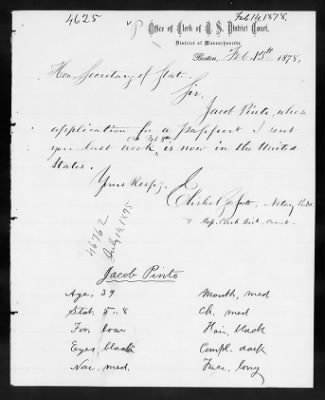 4625
Feb 14, 1878.
Office of Clerk of U. S. District Court,
District of Massachusetts.
Boston, Feb. 13th 1878.
Hon. Secretary of State.
Sir,
Jacob Pinto, whose
application for a passport I sent
you last week, is now in the United
States.
Yours Resp'y,
Notary Pub.
& Dep. Clerk Dist. Court.
46762
Jacob Pinto
Age, 39
Mouth, med
Stat. 5-8
Ch. med
For. low
Hair, black
Eyes, black
Compl. dark
Nose. med.
Face, long